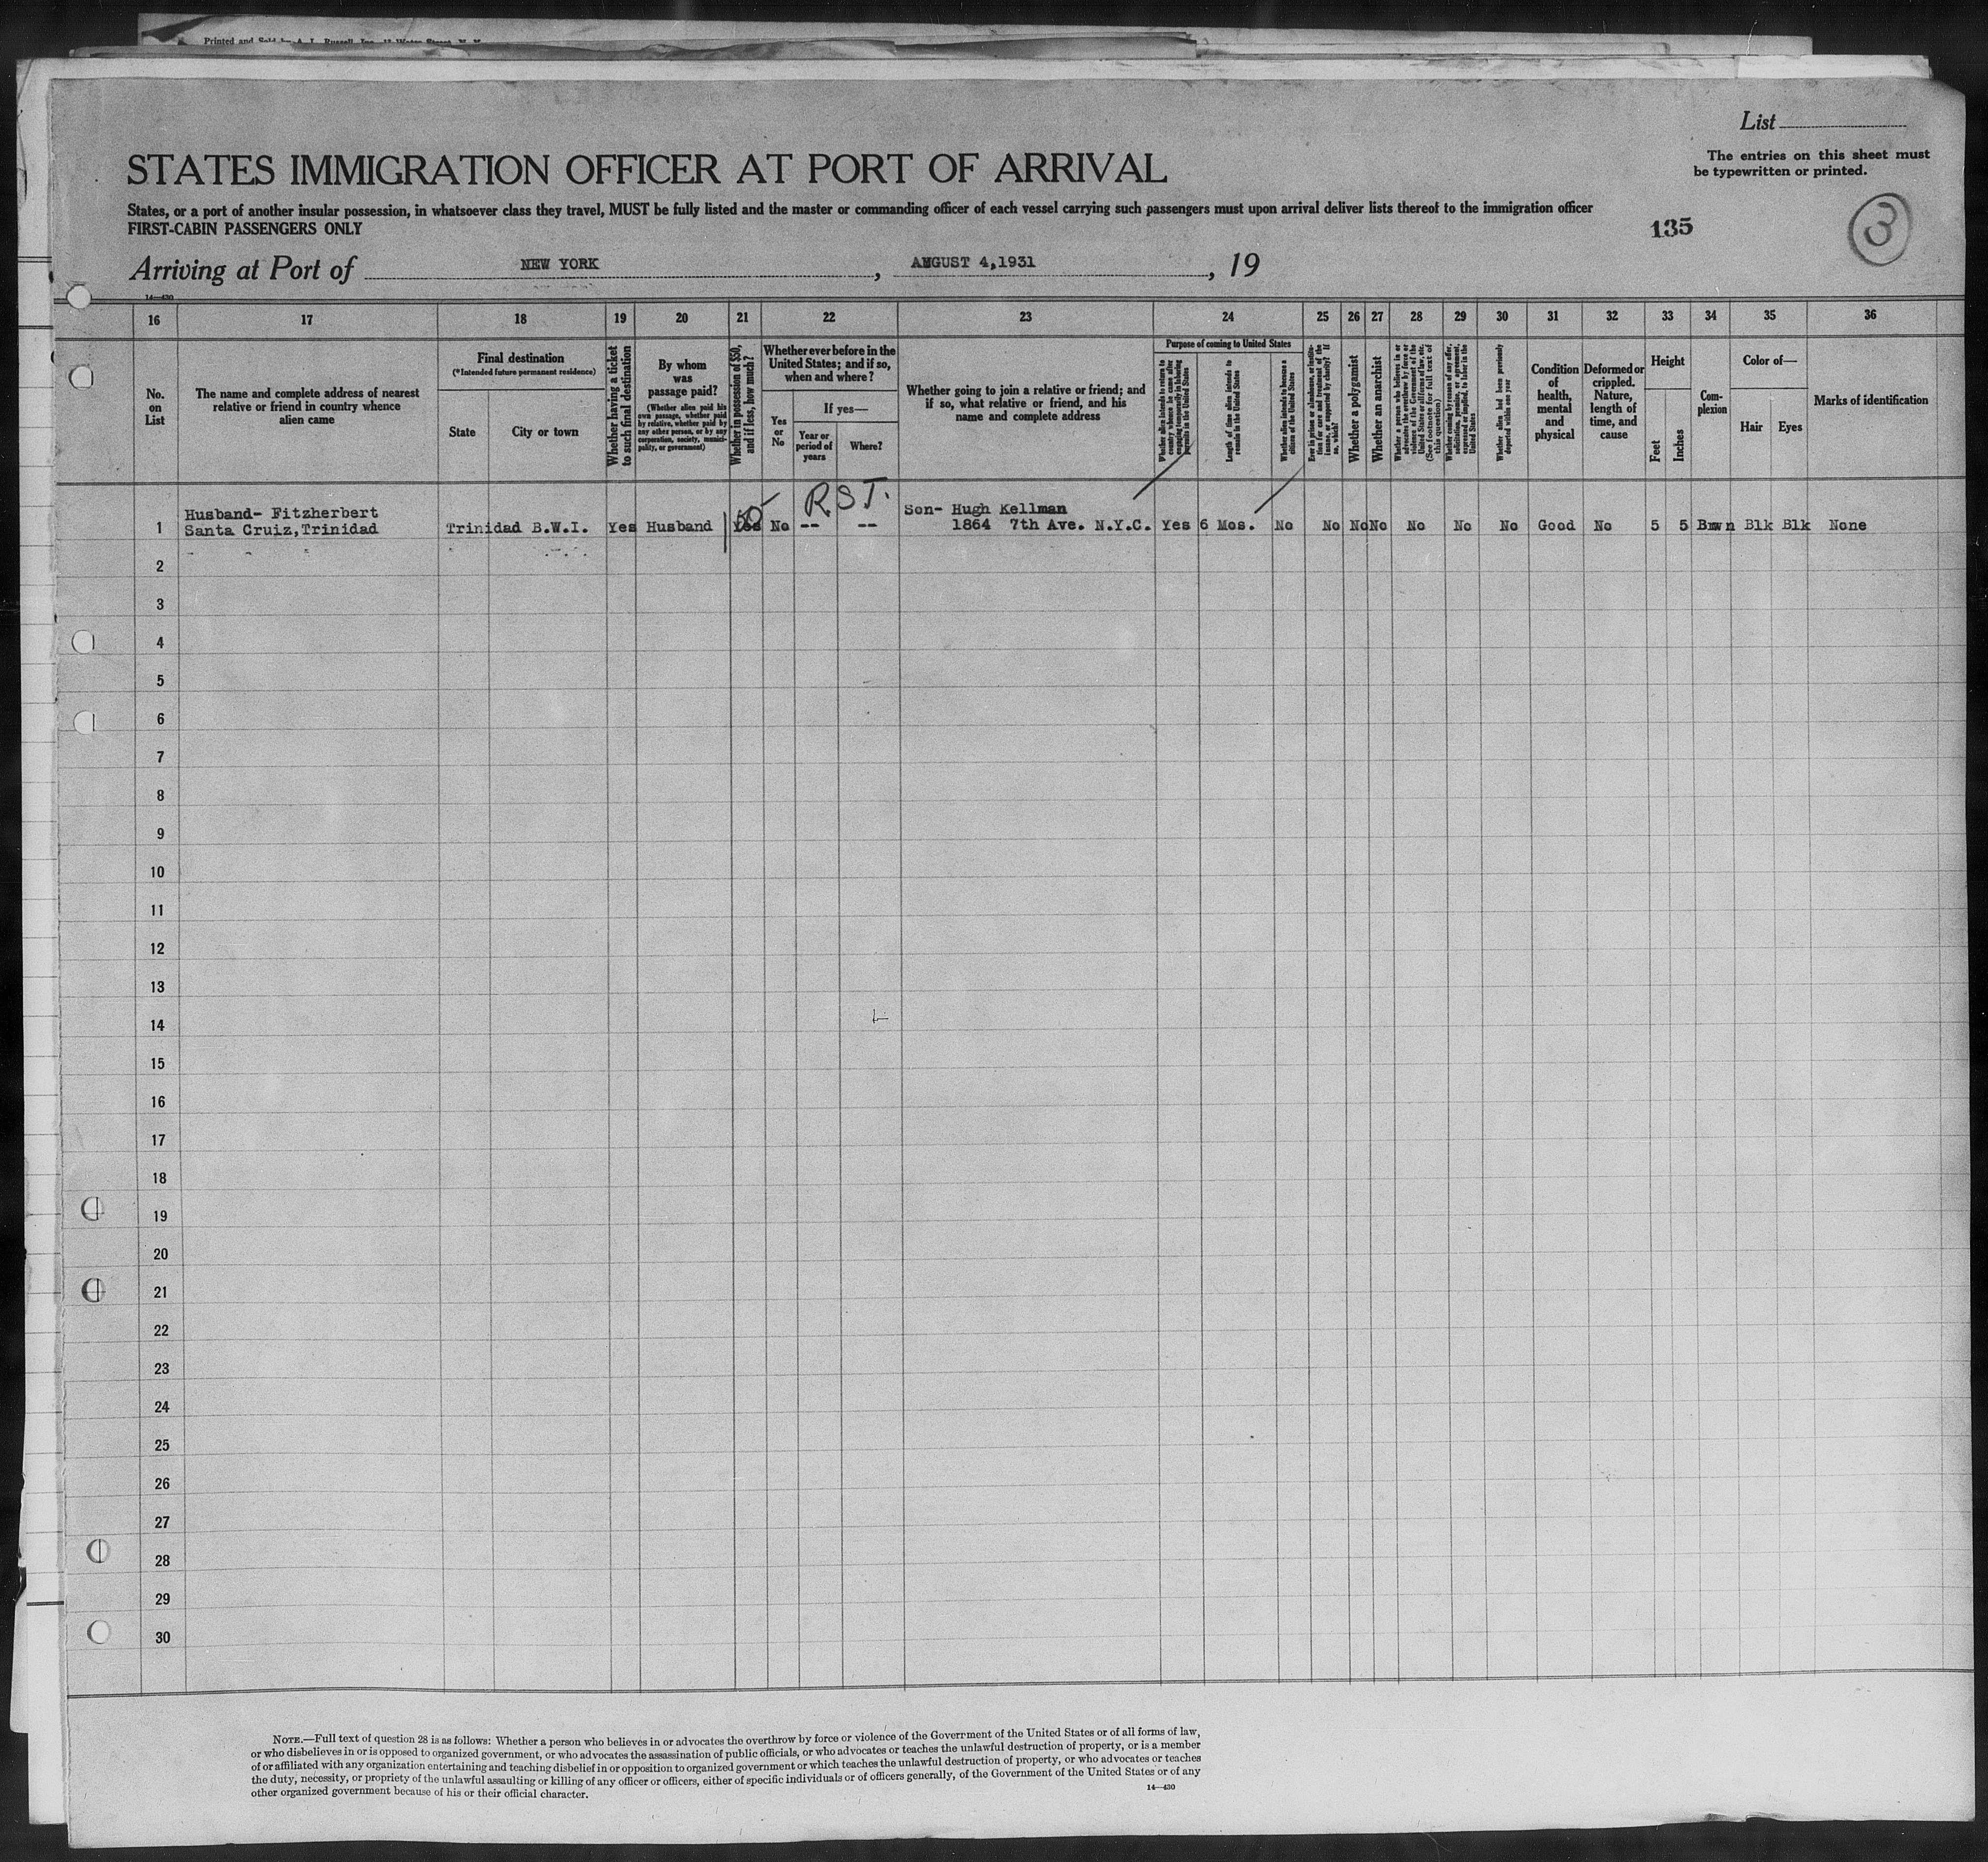 Printed and Sold by A. L. Russell, Inc.,
List
The entries on this sheet must
be typewritten or printed.
STATES IMMIGRATION OFFICER AT PORT OF ARRIVAL
States, or a port of another insular possession, in whatsoever class they travel, MUST be fully listed and the master or commanding officer of each vessel carrying such passengers must upon arrival deliver lists thereof to the immigration officer
FIRST-CABIN PASSENGERS ONLY
135
3
Arriving at Port of NEW YORK, AUGUST 4,1931, 19
14—430
16 17 18 19 20 21 22 23 24 25 26 27 28 29 30 31 32 33 34 35 36
No.
on
List
The name and complete address of nearest
relative or friend in country whence
alien came
Final destination
(*Intended future permanent residence)
State
City or town
Whether having a ticket
to such final destination
By whom
was
passage paid?
(Whether alien paid his
own passage, whether paid
by relative, whether paid by
any other person, or by any
corporation, society, munici-
pality, or government)
Whether in possession of $50,
and if less, how much?
Whether ever before in the
United States; and if so,
when and where?
Yes
or
No
If yes—
Year or
period of
years
Where?
Whether going to join a relative or friend; and
if so, what relative or friend, and his
name and complete address
Purpose of coming to United States
Whether alien intends to return to
country whence he came after
engaging temporarily in laboring
pursuits in the United States
Length of time alien intends to
remain in the United States
Whether alien intends to become a
citizen of the United States
Ever in prison or almshouse, or institu-
tion for care and treatment of the
insane, or supported by charity? If
so, which?
Whether a polygamist
Whether an anarchist
Whether a person who believes in or
advocates the overthrow by force or
violence of the Government of the
United States or all forms of law, etc.
(See footnote for full text of
this question)
Whether coming by reason of any offer,
solicitation, promise, or agreement,
expressed or implied, to labor in the
United States
Whether alien had been previously
deported within one year
Condition
of
health,
mental
and
physical
Deformed or
crippled.
Nature,
length of
time, and
cause
Height
Feet
Inches
Com-
plexion
Color of—
Hair
Eyes
Marks of identification
50 RST.
Husband- Fitzherbert Son- Hugh Kellman
1 Santa Cruiz,Trinidad Trinidad B.W.I. Yes Husband Yes No -- -- 1864 7th Ave. N.Y.C. Yes 6 Mos. No No No No No No No Good No 5 5 Brwn Blk Blk None
2
3
4
5
6
7
8
9
10
11
12
13
14
15
16
17
18
19
20
21
22
23
24
25
26
27
28
29
30
NOTE.—Full text of question 28 is as follows: Whether a person who believes in or advocates the overthrow by force or violence of the Government of the United States or of all forms of law,
or who disbelieves in or is opposed to organized government, or who advocates the assassination of public officials, or who advocates or teaches the unlawful destruction of property, or is a member
of or affiliated with any organization entertaining and teaching disbelief in or opposition to organized government or which teaches the unlawful destruction of property, or who advocates or teaches
the duty, necessity, or propriety of the unlawful assaulting or killing of any officer or officers, either of specific individuals or of officers generally, of the Government of the United States or of any
other organized government because of his or their official character.
14—430